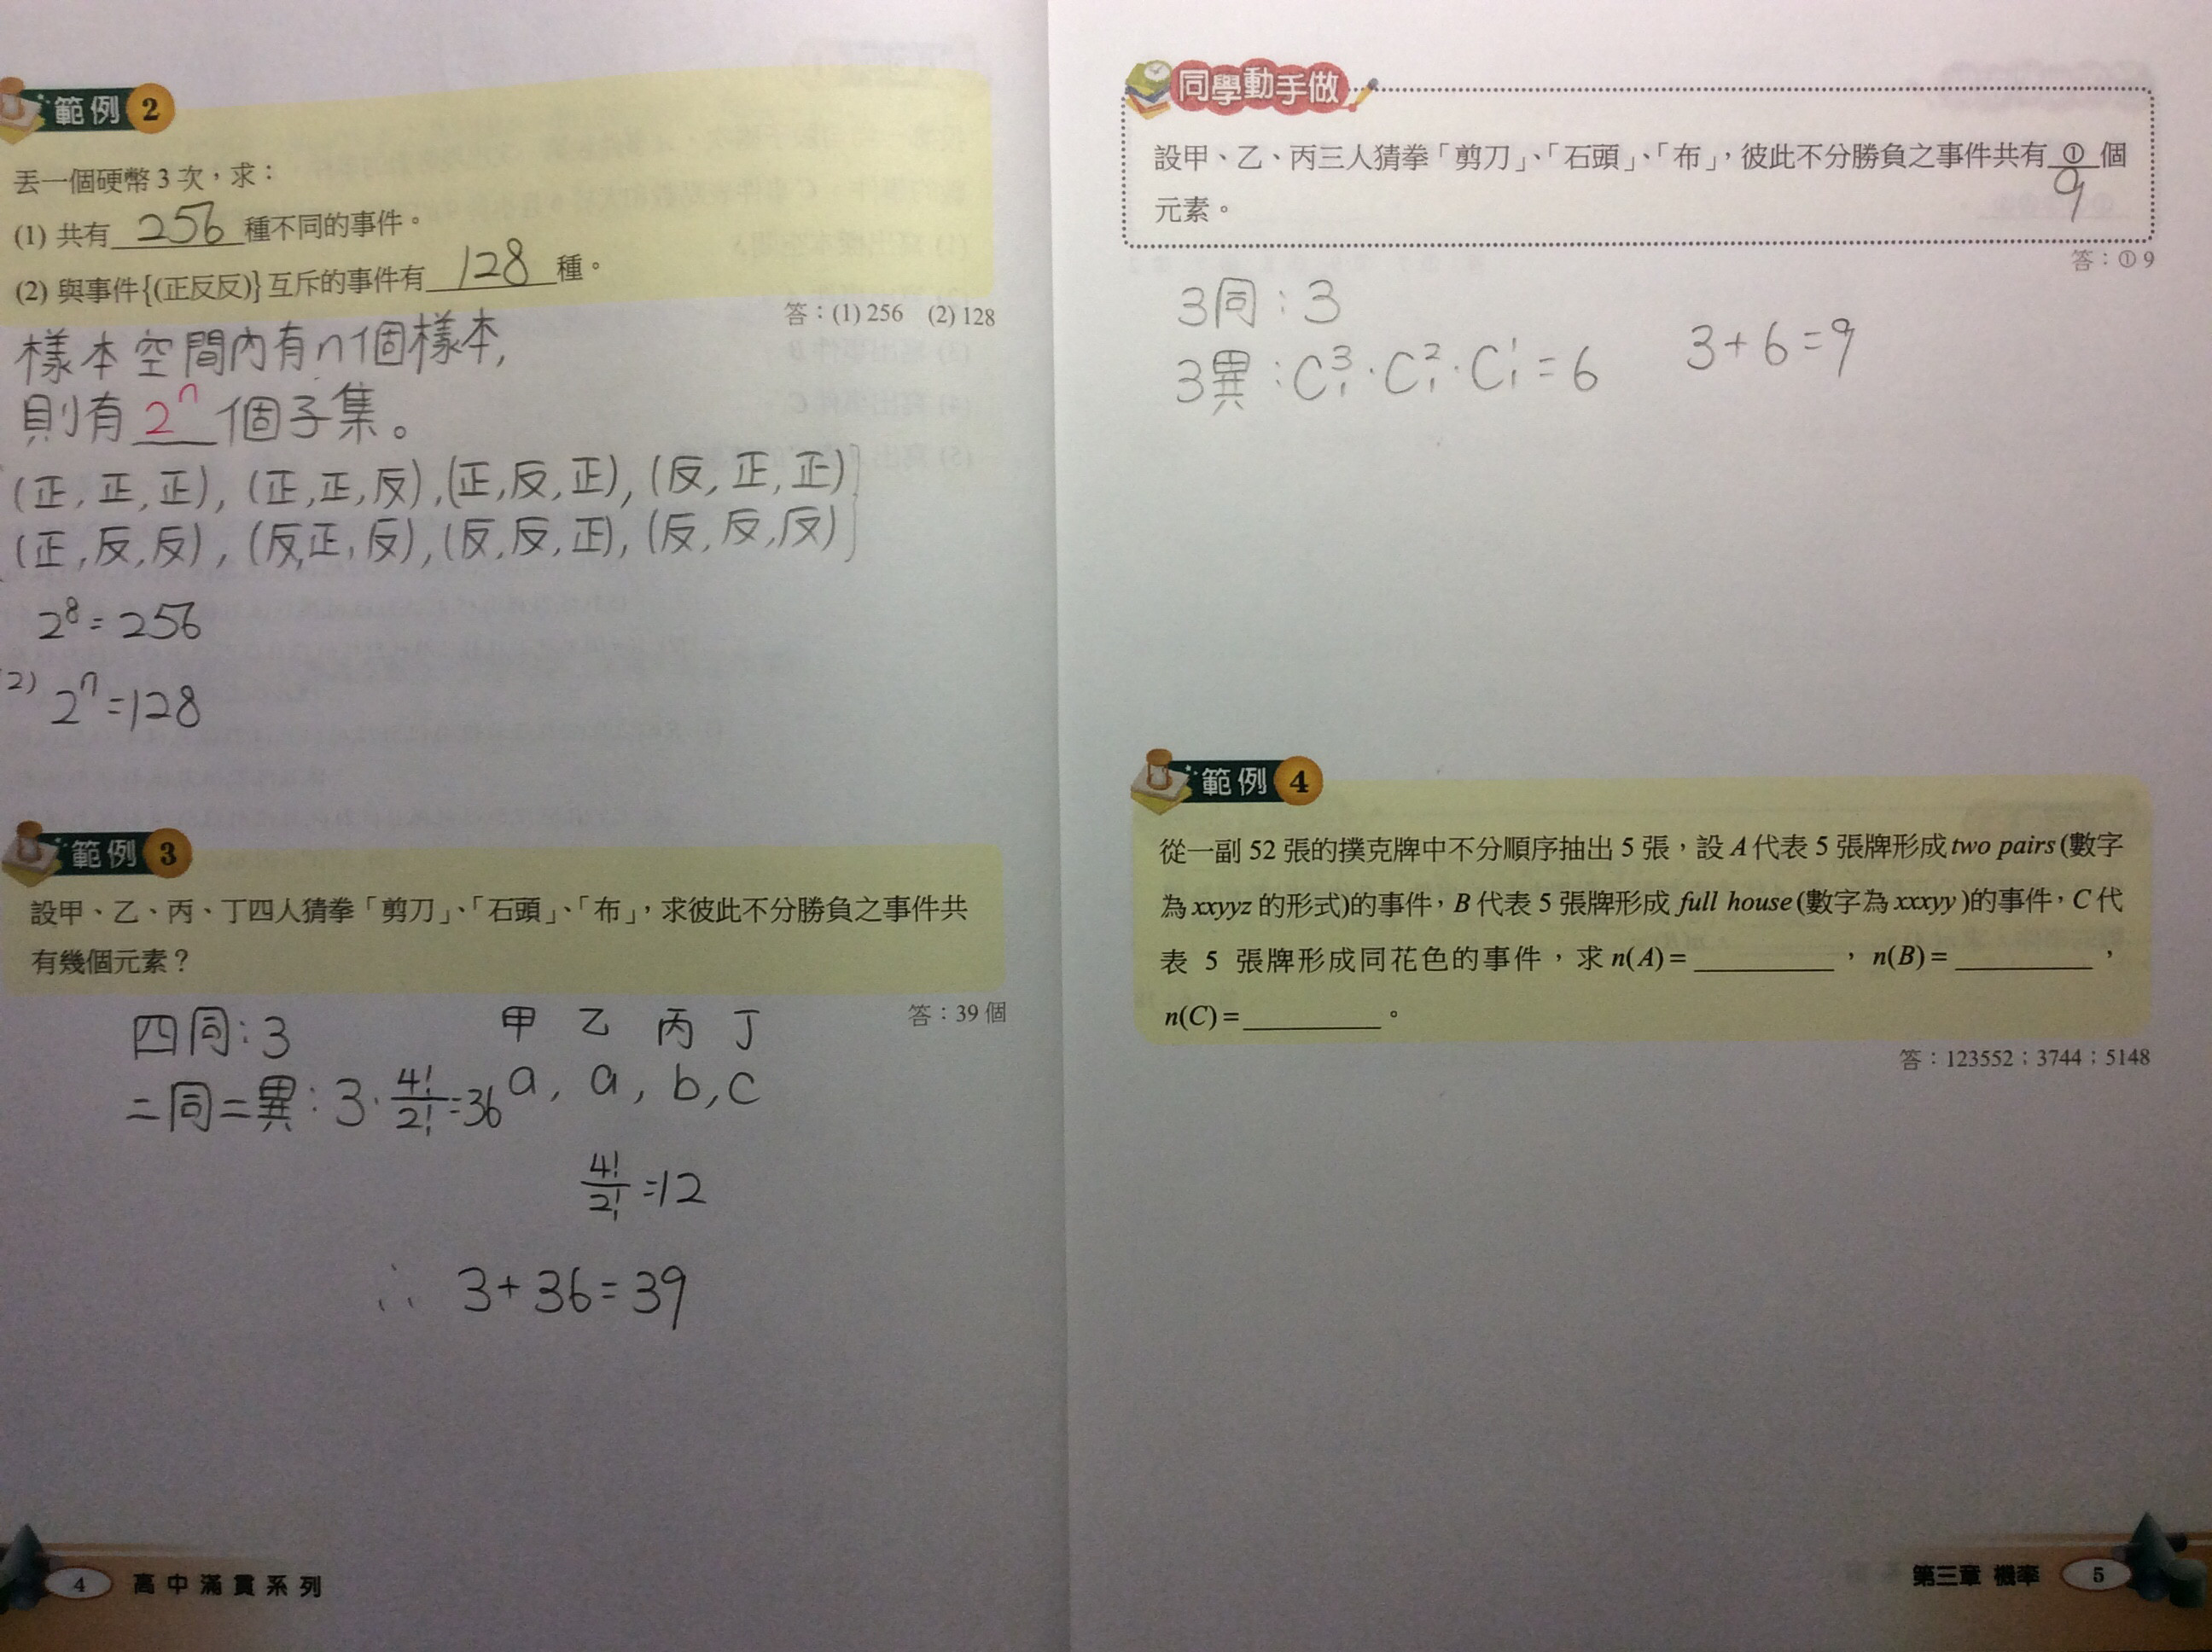 範例 2
丟一個硬幣 3 次，求：
(1) 共有 256 種不同的事件。
(2) 與事件{(正反反)} 互斥的事件有 128 種。
答：(1) 256 (2) 128
樣本空間內有n個樣本,
則有 2ⁿ 個子集。
(正, 正, 正), (正, 正, 反), (正, 反, 正), (反, 正, 正)
(正, 反, 反), (反, 正, 反), (反, 反, 正), (反, 反, 反)
2⁸ = 256
2) 2ⁿ = 128
範例 3
設甲、乙、丙、丁四人猜拳「剪刀」、「石頭」、「布」，求彼此不分勝負之事件共
有幾個元素？
答：39 個
四同：3
二同二異：3 · 4!/2! = 36
甲 乙 丙 丁
a, a, b, c
4!/2! = 12
∴ 3 + 36 = 39
4 高中滿貫系列
同學動手做
設甲、乙、丙三人猜拳「剪刀」、「石頭」、「布」，彼此不分勝負之事件共有 ① 個
9
元素。
答：① 9
3同：3
3異：C³₁ · C²₁ · C¹₁ = 6
3 + 6 = 9
範例 4
從一副 52 張的撲克牌中不分順序抽出 5 張，設 A 代表 5 張牌形成 two pairs (數字
為 xxyyz 的形式)的事件，B 代表 5 張牌形成 full house (數字為 xxxyy )的事件，C 代
表 5 張牌形成同花色的事件，求 n(A) = __________ ，n(B) = __________ ，
n(C) = __________ 。
答：123552；3744；5148
第三章 機率 5